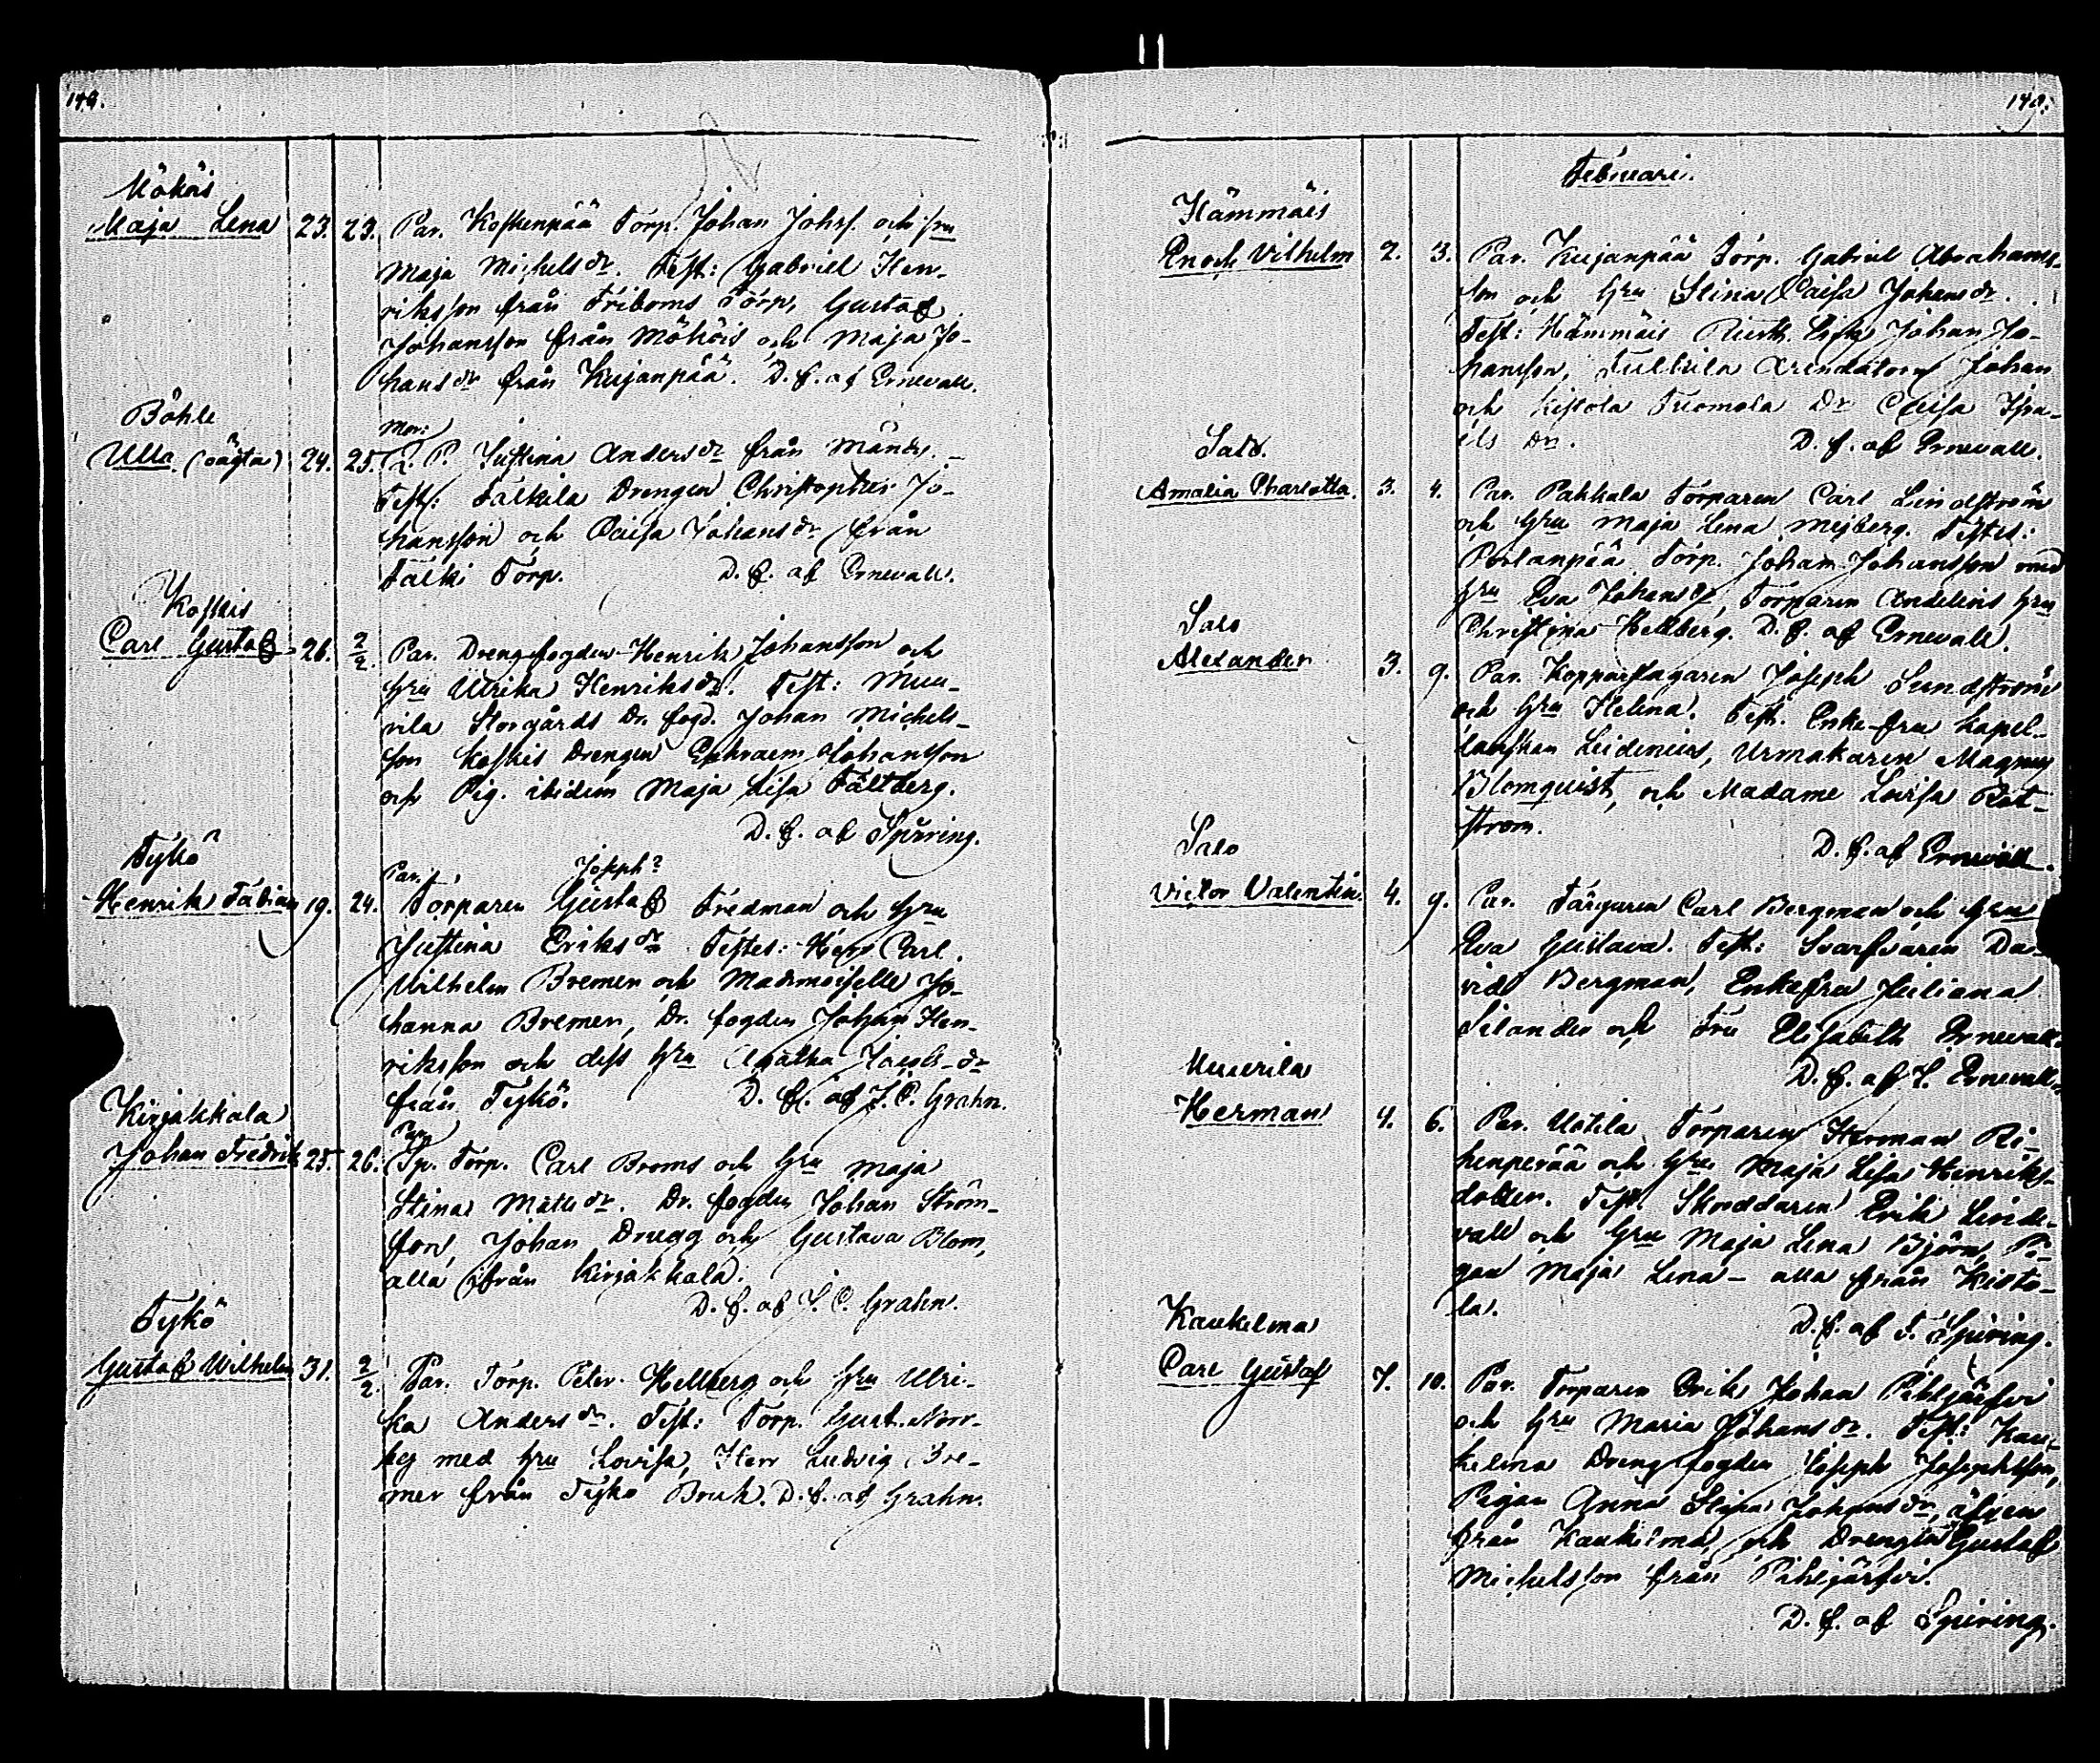 149.
Mököis
Maja Lena 23. 23. Par. Koskenpää Torp. Johan Johss. och hru
Maja Michelsdr. Test: Gabriel Hen-
riksson från Friboms Torp, Gustaf
Johansson från Mököis och Maja Jo-
hansdr från Kujanpää. D. f. af Ernevall.
Böhle
Mor:
Ulla (oägta) 24. 25. Q. P. Justina Andersdr från
Test: Tälkila Drengen Christopher Jo-
hansson och Caisa Johansdr från
Tälki Torp. D. f. af Ernevall.
Koskis
Carl Gustaf 26. 2/2. Par. Drengfogden Henrik Johansson och
hru Ulrika Henriksdr. Test: Muu-
rila Storgårds Dr. fogd. Johan Michels-
son Koskis Drengen Ephraem Johansson
och Pig. ibidem Maja Lisa Fältberg.
D. f. af Spÿring.
Tykö
Par. Joseph?
Henrik Fabian 19. 24. Torparen Gustaf Fredman och hru
Justina Eriksdr Testes: Herr Carl
Wilhelm Bremer och Mademoiselle Jo-
hanna Bremer, Dr. fogden Johan Hen-
riksson och dess hru Agatha Jacobsdr
från Tykö. D. f. af J. C. Grahn.
Kirjakkala
Par.
Johan Fredrik 25. 26. Sp. Torp. Carl Broms och hru Maja
Stina Mattsdr. Dr. fogden Johan Ström-
fors, Johan Drugg och Gustava Blom,
alla ifrån Kirjakkala.
D. f. af J. C. Grahn.
Tykö
Gustaf Wilhelm 31. 2/2. Par. Torp. Peter Hellberg och hru Ulri-
ka Andersdr. Test: Torp. Gust. Norr-
med hru Lovisa, Herr Ludvig Bre-
mer från Tykö Bruk. D. f. af Grahn.
149.
Februari.
Hämmäis
Enoch Vilhelm 2. 3. Par. Kujanpää Torp. Gabriel Abrahams-
son och hru Stina Caisa Johansdr.
Test: Hämmäis Rusth. Johan Jo-
hansson, Arendatorn Johan
och Kistola Tuomola Dr Caisa Isra-
els Dr. D. f. af Ernevall.
Salo.
Amalia Charlotta. 3. 4. Par. Pakkala Torparen Carl Lindström
och hru Maja Lena Mejberg. Testes:
Torp. Johan Johansson med
hru Eva Johansdr, Torparen Andelins hru
Christina Hellberg. D. f. af Ernevall.
Salo
Alexander 3. 9. Par. Kopparslagaren Joseph Sundström
och hru Helena. Test. Enke-fru Kapel-
lanskan Leidenius, Urmakaren Magnus
Blomquist, och Madame Lovisa Rot-
ström.
D. f. af Ernevall.
Salo
Victor Valentin. 4. 9. Par. Färgaren Carl Bergman och hru
Eva Gustava. Test: Svarfvaren Da-
vid Bergman, Enkefru Juliana
Silander och Fru Elisabeth Ernevall.
D. f. af J. Ernevall.
Muurila
Herman 4. 6. Par. Uotila Torparen Herman Ri-
henperää och hru Maja Lisa Henriks-
dotter. Test. Skräddaren Erik Linde-
vall och hru Maja Lena Björn, Pi-
gan Maja Lena — alla från Kisto-
la.
D. f. af J. Spÿring.
Kaukelma
Carl Gustaf 7. 10. Par. Torparen Erik Johan Pihljärfvi
och hru Maria Johansdr. Test: Kau-
kelma Drengfogden Joseph Josephsson,
Pigan Anna Stina Johansdr, äfven
från Kaukelma, och Drengen Gustaf
Michelsson från Pihljärfvi.
D. f. af Spÿring.